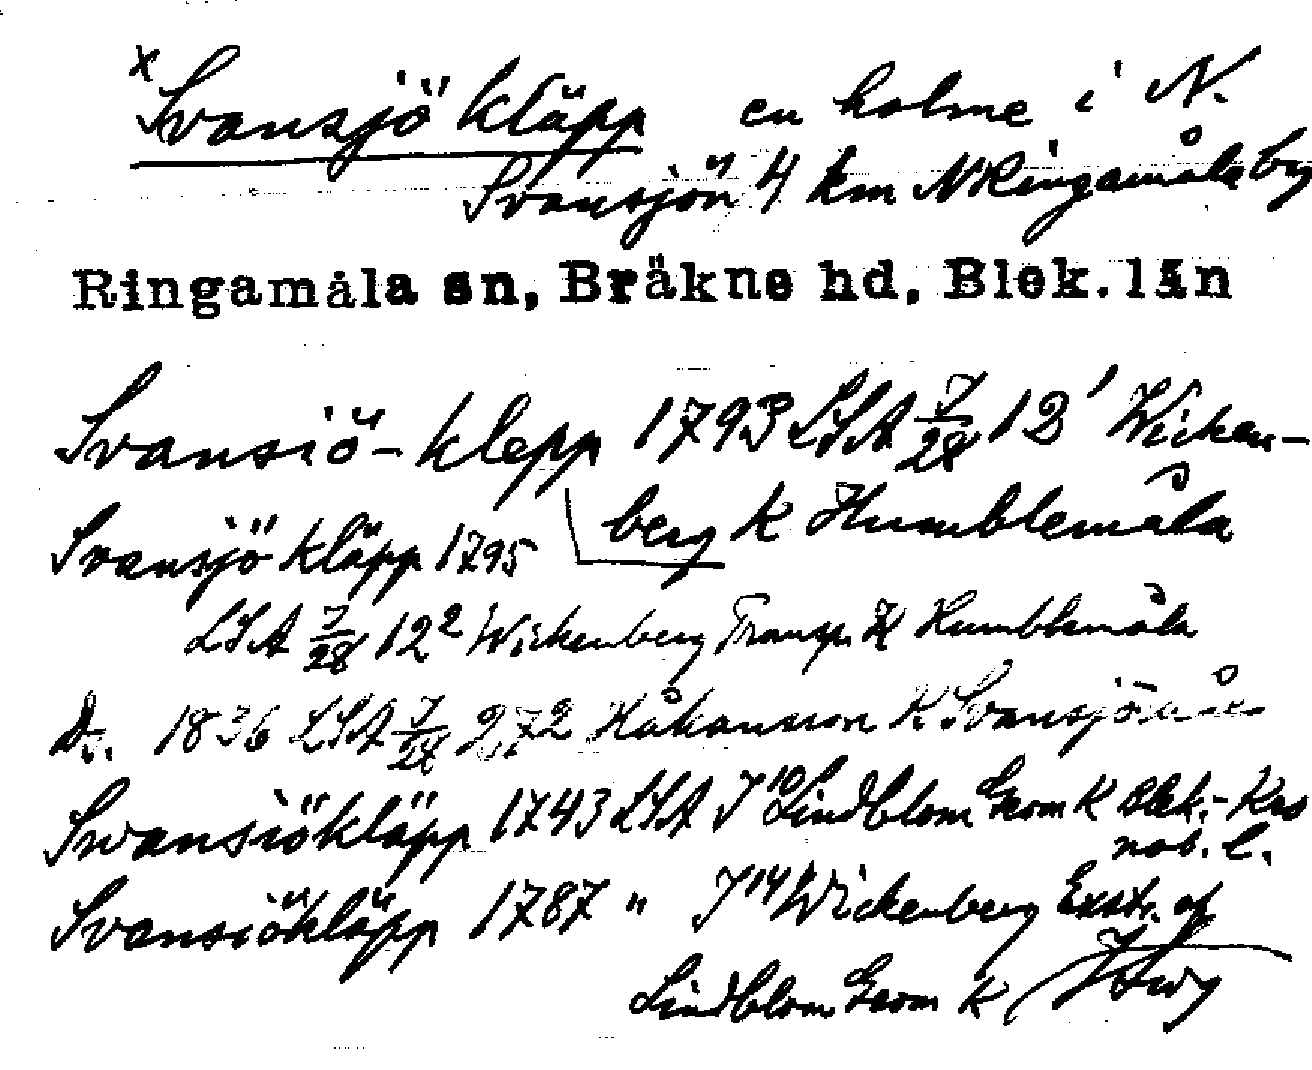 x Svansjö kläpp en holme i N.
Svansjön 4 km N Ringamåla by
Ringamåla sn, Bräkne hd, Blek. län
Svansiö-klepp 1793 LSA 7/28 12¹ Wicken-
berg K Humblemåla
Svansjö kläpp 1795
LSA 7/28 12² Wickenberg Transp. K Humblemåla
D:o. 1836 LSA 7/28 272 Håkansson K Svansjömåla
Swansiökläpp 1743 LSA J 10 Lindblom Geom K Blek.-Kro
nob. l.
Svansiökläpp 1787 " J 14 Wickenberg Extr. af
Lindblom Geom K